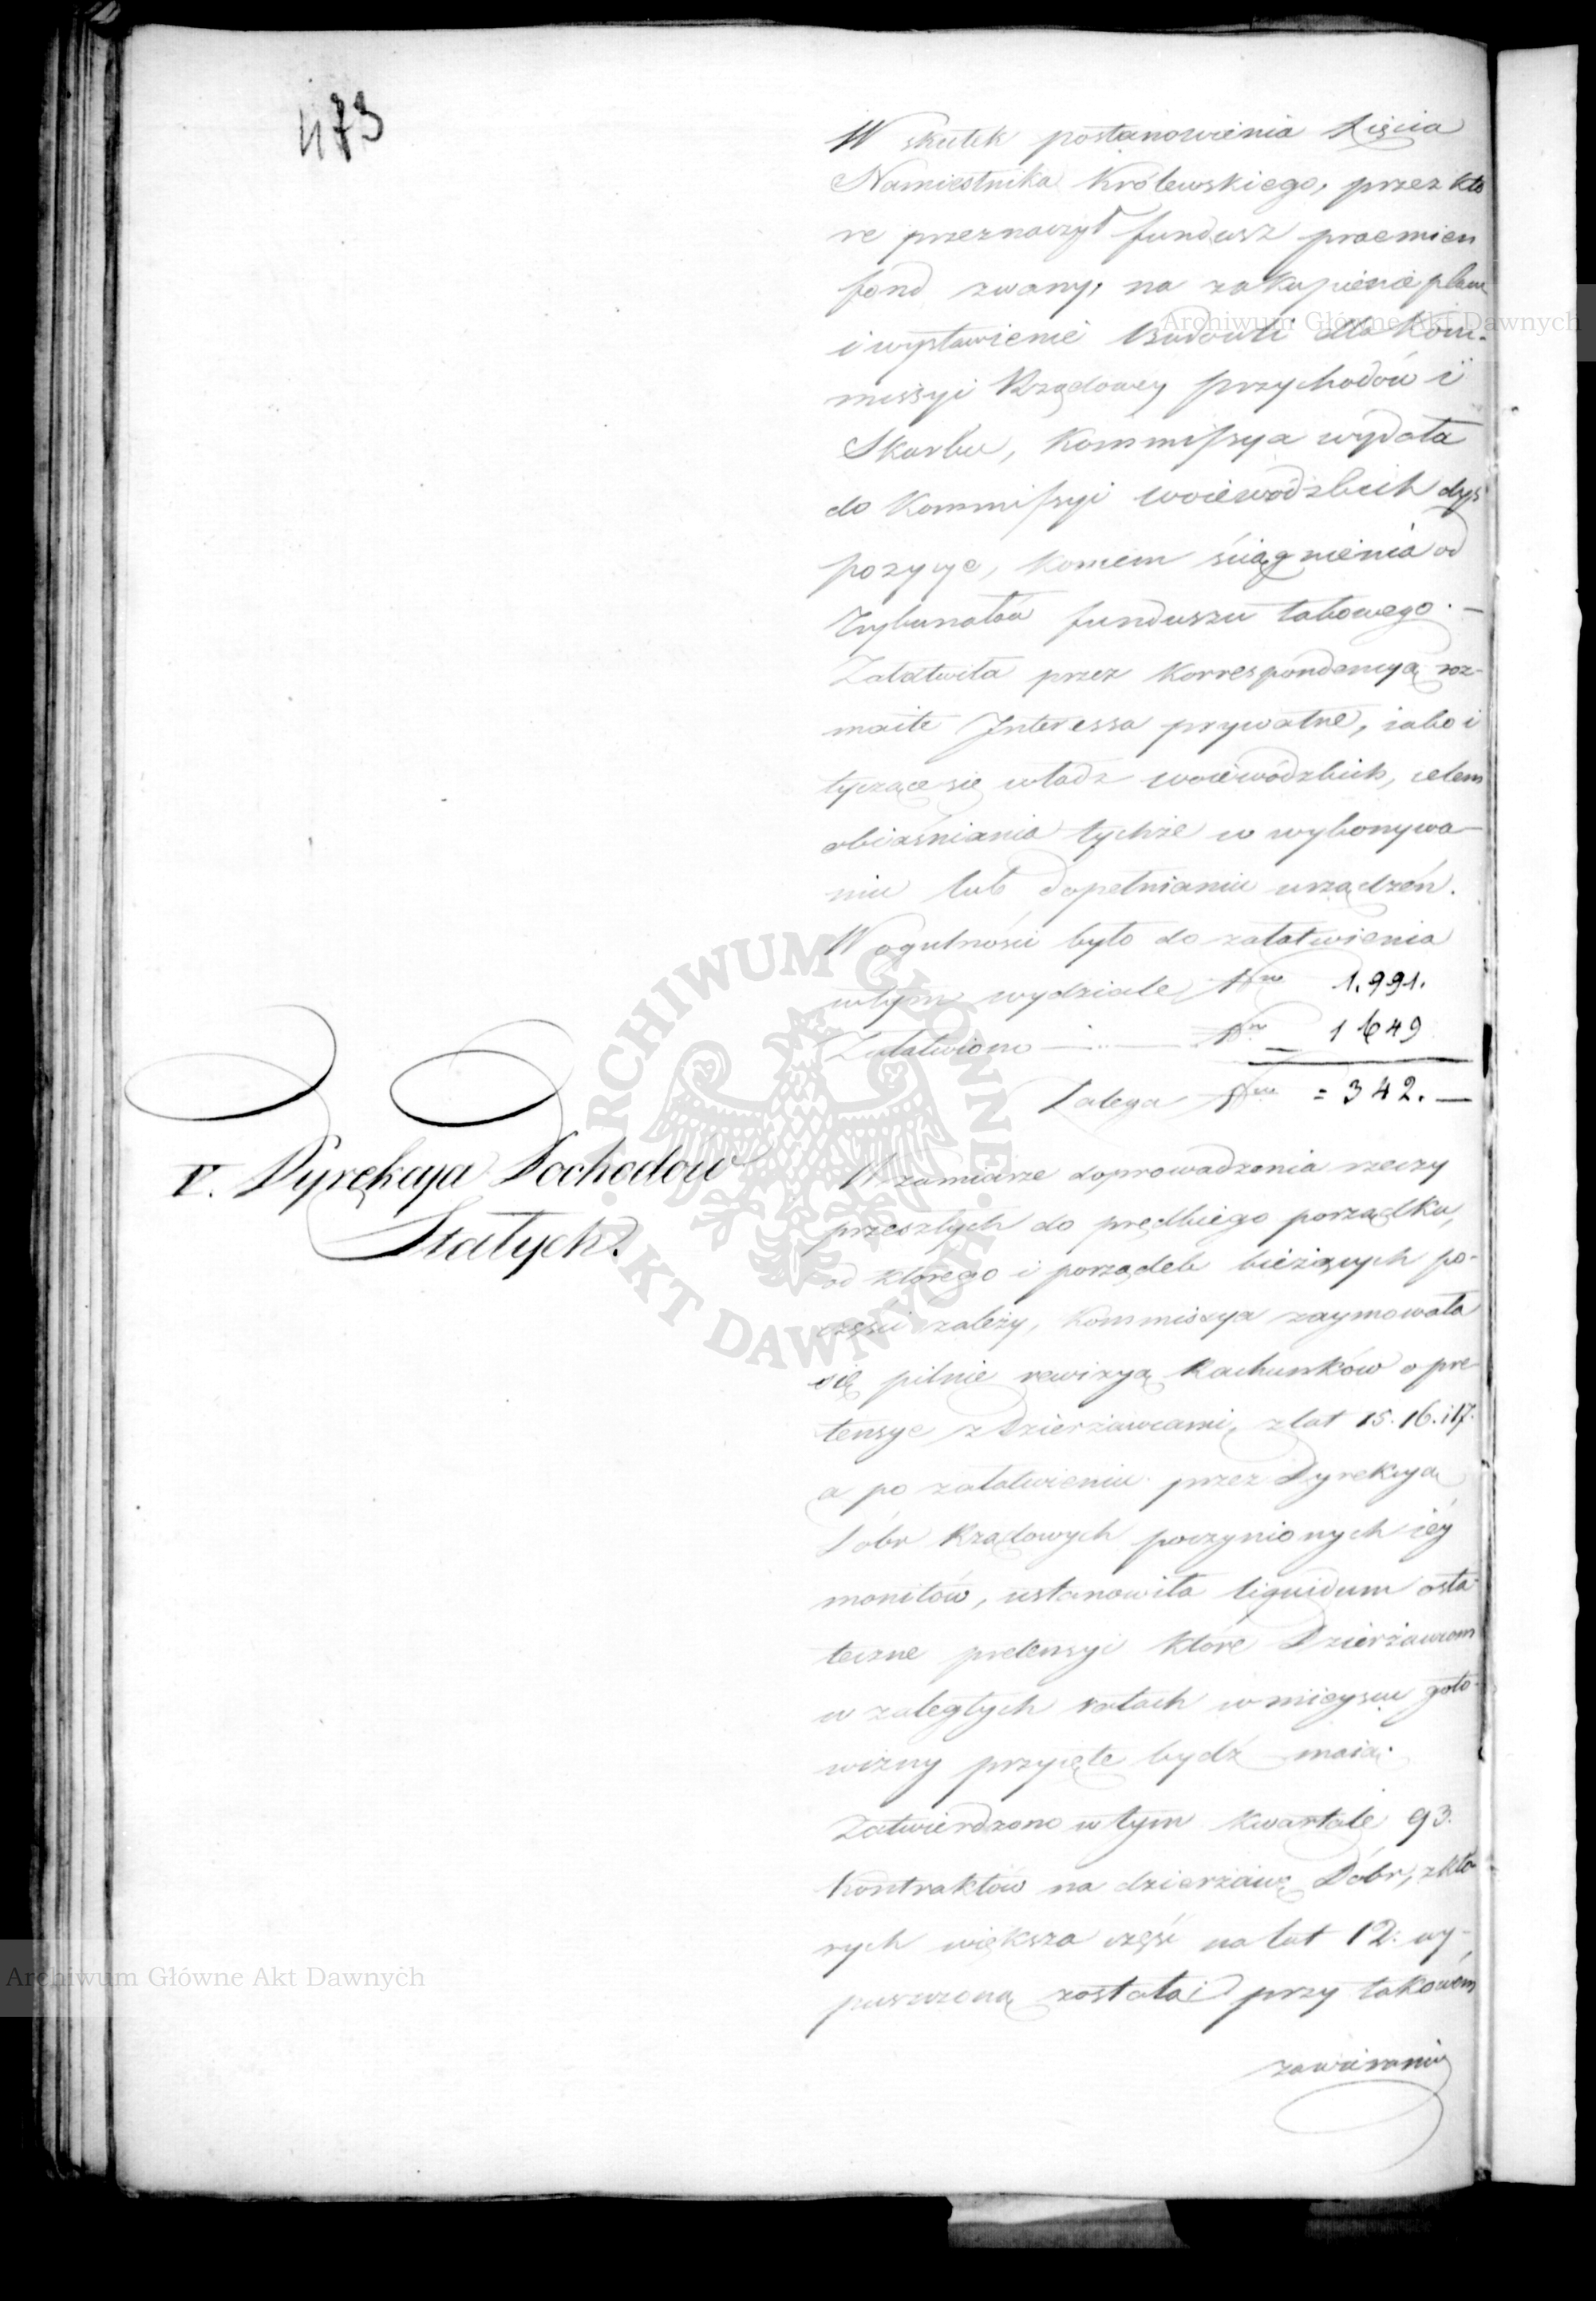 473
W skutek postanowienia Xięcia
Namiestnika Królewskiego, przez któ
re przeznaczył fundusz praemien
fond zwany, na zakupienie placu
i wystawienie budowli dla Kom-
missyi Rządowey przychodów i
Skarbu, Kommissya wydała
do Kommissyi woiewódzkich dys
pozycye, końcem ściągnienia od
Trybunałów funduszu takowego. —
Załatwiła przez korrespondencyą roz-
maite Interessa prywatne, iako i
tyczące się władz woiewódzkich, celem
obiaśniania tychże w wykonywa-
niu lub dopełnianiu urządzeń.
W ogulności było do załatwienia
w tym wydziale Nro 1.991.
Załatwiono — Nro 1649
Zalega Nro = 342. —
V. Dyrekcya Dochodów
Stałych.
W zamiarze doprowadzenia rzeczy
przeszłych do prędkiego porządku,
od którego i porządek bieżących po-
części zależy, Kommissya zaymowała
się pilnie rewizyą Rachunków o pre-
tensye z Dzierżawcami, z lat 15. 16. i 17.
a po załatwieniu przez Dyrekcyą
Dóbr Rządowych poczynionych iéy
monitów, ustanowiła liquidum osta-
teczne pretensyi które Dzierżawcom
w zaległych ratach w mieyscu goto-
wizny przyięte bydź maią.
Zatwierdzono w tym kwartale 93.
Kontraktów na dzierżawę Dóbr, z któ-
rych większa część na lat 12. wy-
puszczoną została i przy takowém
zawieraniu
Archiwum Główne Akt Dawnych
Archiwum Główne Akt Dawnych
ARCHIWUM GŁÓWNE · AKT DAWNYCH ·